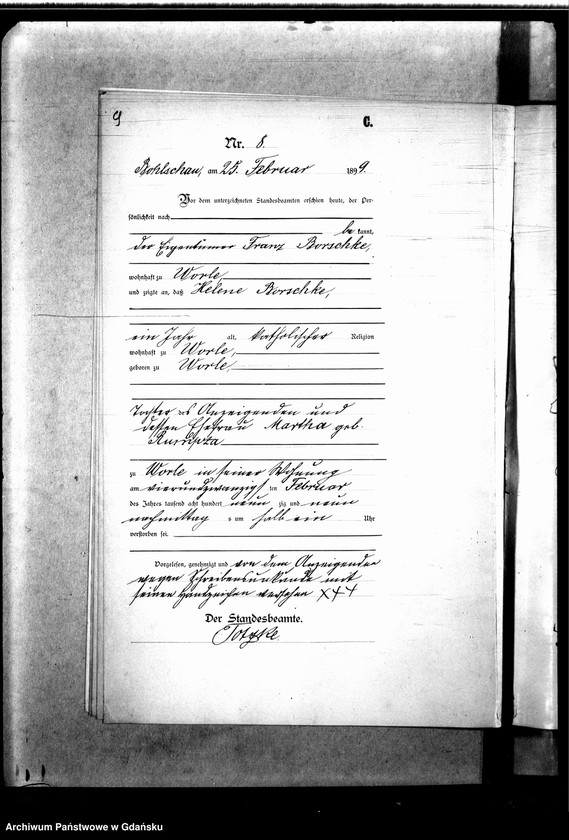 9
C.
Nr. 8.
Bohlschau, am 25. Februar 1899.
Vor dem unterzeichneten Standesbeamten erschien heute, der Per-
sönlichkeit nach
be kannt,
der Eigentümer Franz Borschke,
wohnhaft zu Worle,
und zeigte an, daß Helene Borschke,
ein Jahr alt, katholischer Religion
wohnhaft zu Worle,
geboren zu Worle,
Tochter des Anzeigenden und
dessen Ehefrau Martha geb.
zu Worle in seiner Wohnung
am vierundzwanzigsten Februar
des Jahres tausend acht hundert neun zig und neun
nachmittag s um halb ein Uhr
verstorben sei.
Vorgelesen, genehmigt und von dem Anzeigenden
wegen Schreibensunkunde mit
seinen Handzeichen versehen XXX
Der Standesbeamte.
Totzke
Archiwum Państwowe w Gdańsku